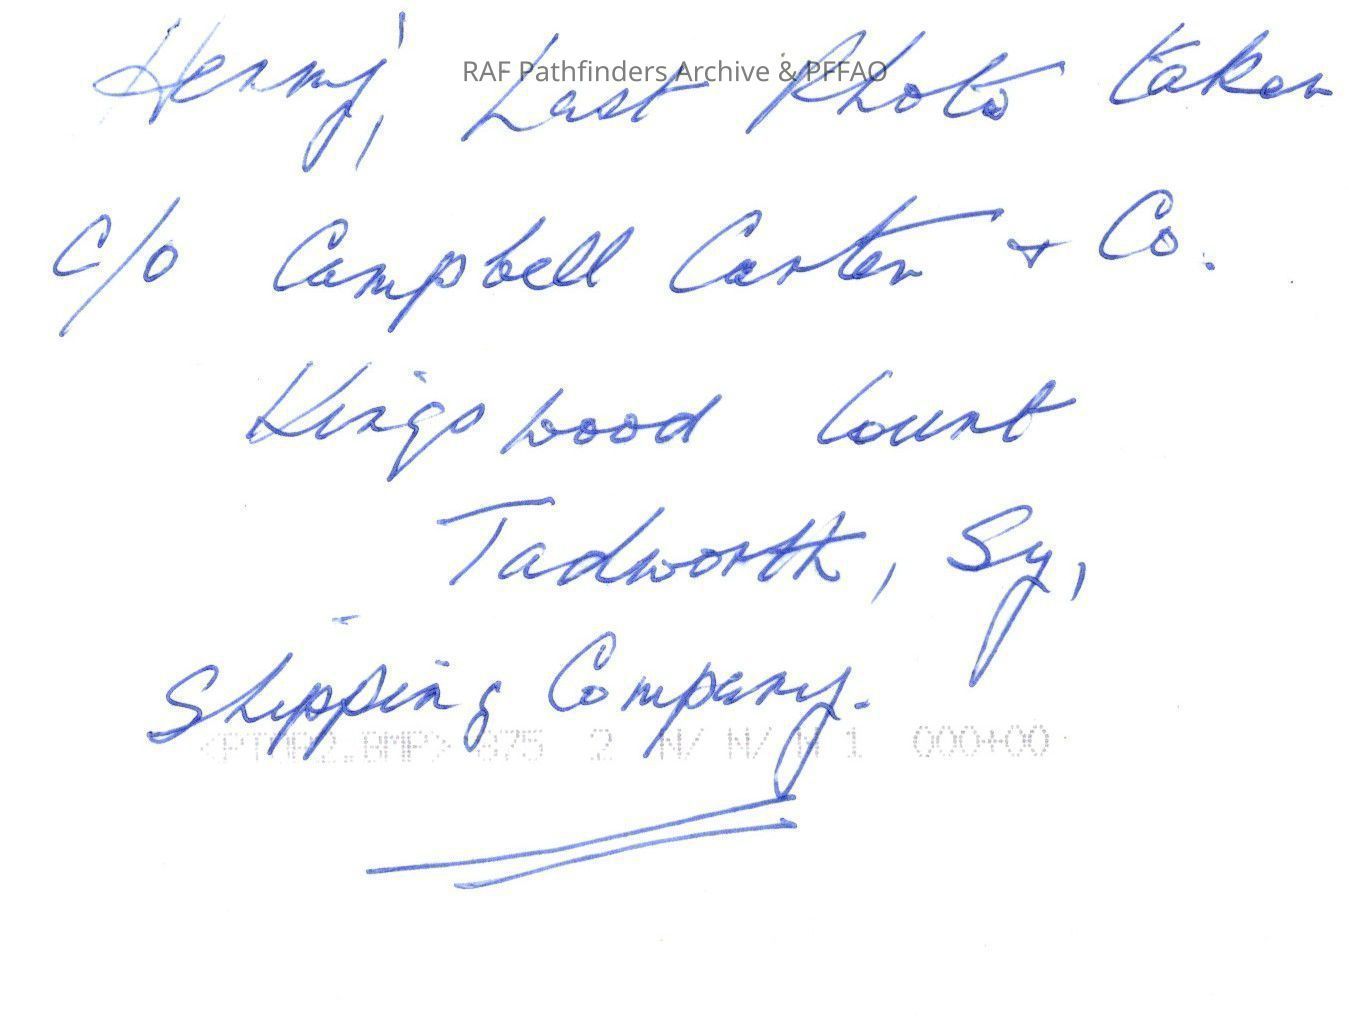 RAF Pathfinders Archive & PFFAO
Henry', Last Photo taken
c/o Campbell Carter + Co.
Kingswood Court
Tadworth, Sy,
Shipping Company.
075 2 N/ N/ N 1 000+00